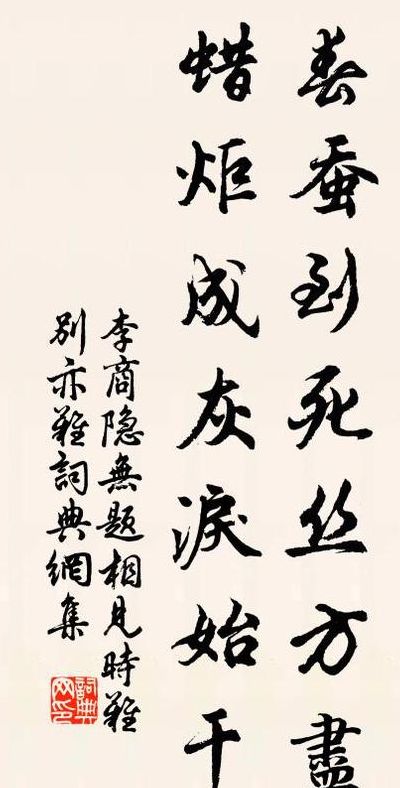 春蚕到死丝方盡
蜡炬成灰淚始干
李商隐無题相見時難
别亦難詞典網集
詞典網印